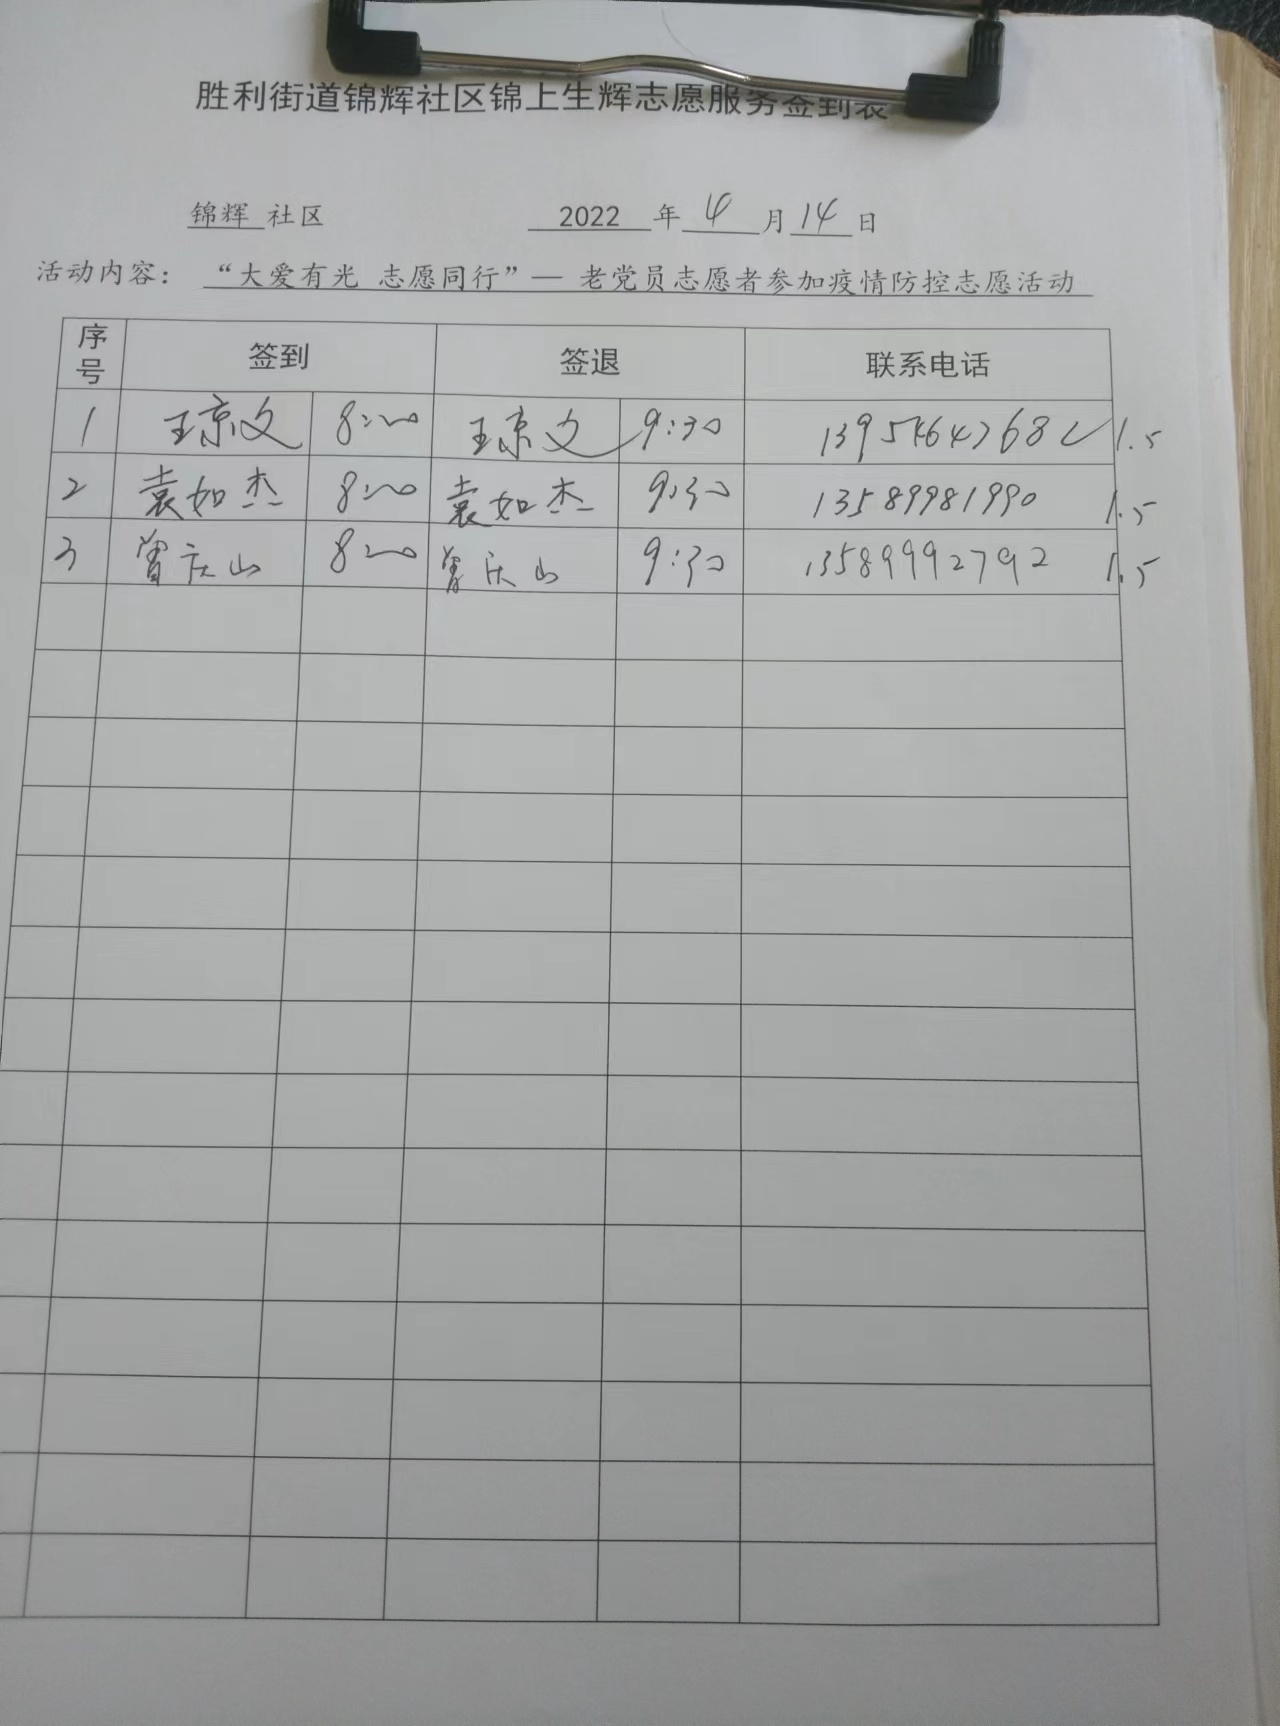 胜利街道锦辉社区锦上生辉志愿服务签到表
锦辉 社区 2022 年 4 月 14 日
活动内容： “大爱有光 志愿同行”— 老党员志愿者参加疫情防控志愿活动
序号 签到 签退 联系电话
1 王京文 8:00 王京文 9:30 1.5
2 袁如杰 8:00 袁如杰 9:30 13589981990 1.5
3 曾庆山 8:00 曾庆山 9:30 13589992792 1.5